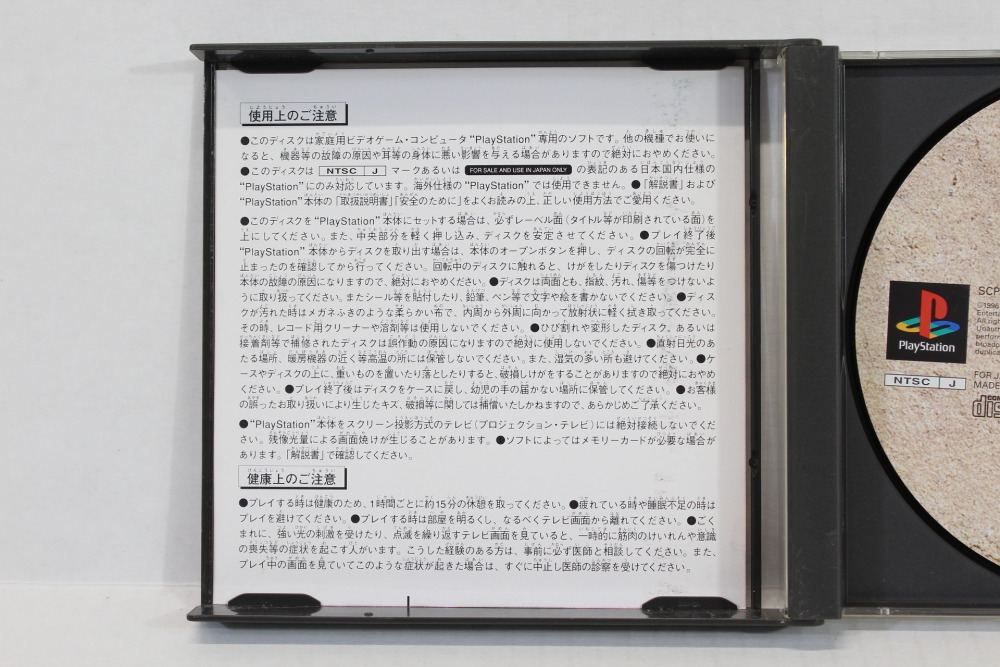 使用上のご注意
●このディスクは家庭用ビデオゲーム・コンピュータ"PlayStation"専用のソフトです。他の機種でお使いに
なると、機器等の故障の原因や耳等の身体に悪い影響を与える場合がありますので絶対におやめください。
●このディスクは NTSC J マークあるいは FOR SALE AND USE IN JAPAN ONLY の表記のある日本国内仕様の
"PlayStation"にのみ対応しています。海外仕様の"PlayStation"では使用できません。●「解説書」および
"PlayStation"本体の「取扱説明書」「安全のために」をよくお読みの上、正しい使用方法でご愛用ください。
●このディスクを"PlayStation"本体にセットする場合は、必ずレーベル面(タイトル等が印刷されている面)を
上にしてください。また、中央部分を軽く押し込み、ディスクを安定させてください。●プレイ終了後
"PlayStation"本体からディスクを取り出す場合は、本体のオープンボタンを押し、ディスクの回転が完全に
止まったのを確認してから行ってください。回転中のディスクに触れると、けがをしたりディスクを傷つけたり
本体の故障の原因になりますので、絶対におやめください。●ディスクは両面とも、指紋、汚れ、傷等をつけないよ
うに取り扱ってください。またシール等を貼付したり、鉛筆、ペン等で文字や絵を書かないでください。●ディス
クが汚れた時はメガネふきのような柔らかい布で、内周から外周に向かって放射状に軽く拭き取ってください。
その時、レコード用クリーナーや溶剤等は使用しないでください。●ひび割れや変形したディスク、あるいは
接着剤等で補修されたディスクは誤作動の原因になりますので絶対に使用しないでください。●直射日光のあ
たる場所、暖房機器の近く等高温の所には保管しないでください。また、湿気の多い所も避けてください。●ケ
ースやディスクの上に、重いものを置いたり落としたりすると、破損しけがをすることがありますので絶対におやめ
ください。●プレイ終了後はディスクをケースに戻し、幼児の手の届かない場所に保管してください。●お客様
の誤ったお取り扱いにより生じたキズ、破損等に関しては補償いたしかねますので、あらかじめご了承ください。
●"PlayStation"本体をスクリーン投影方式のテレビ(プロジェクション・テレビ)には絶対接続しないでくだ
さい。残像光量による画面焼けが生じることがあります。●ソフトによってはメモリーカードが必要な場合が
あります。「解説書」で確認してください。
健康上のご注意
●プレイする時は健康のため、1時間ごとに約15分の休憩を取ってください。●疲れている時や睡眠不足の時は
プレイを避けてください。●プレイする時は部屋を明るくし、なるべくテレビ画面から離れてください。●ごく
まれに、強い光の刺激を受けたり、点滅を繰り返すテレビ画面を見ていると、一時的に筋肉のけいれんや意識
の喪失等の症状を起こす人がいます。こうした経験のある方は、事前に必ず医師と相談してください。また、
プレイ中の画面を見ていてこのような症状が起きた場合は、すぐに中止し医師の診察を受けてください。
PlayStation
NTSC J
SCP
©1996
Enterta
All righ
Unauth
perform
broadc
duplica
FOR J
MADE
COM
disc